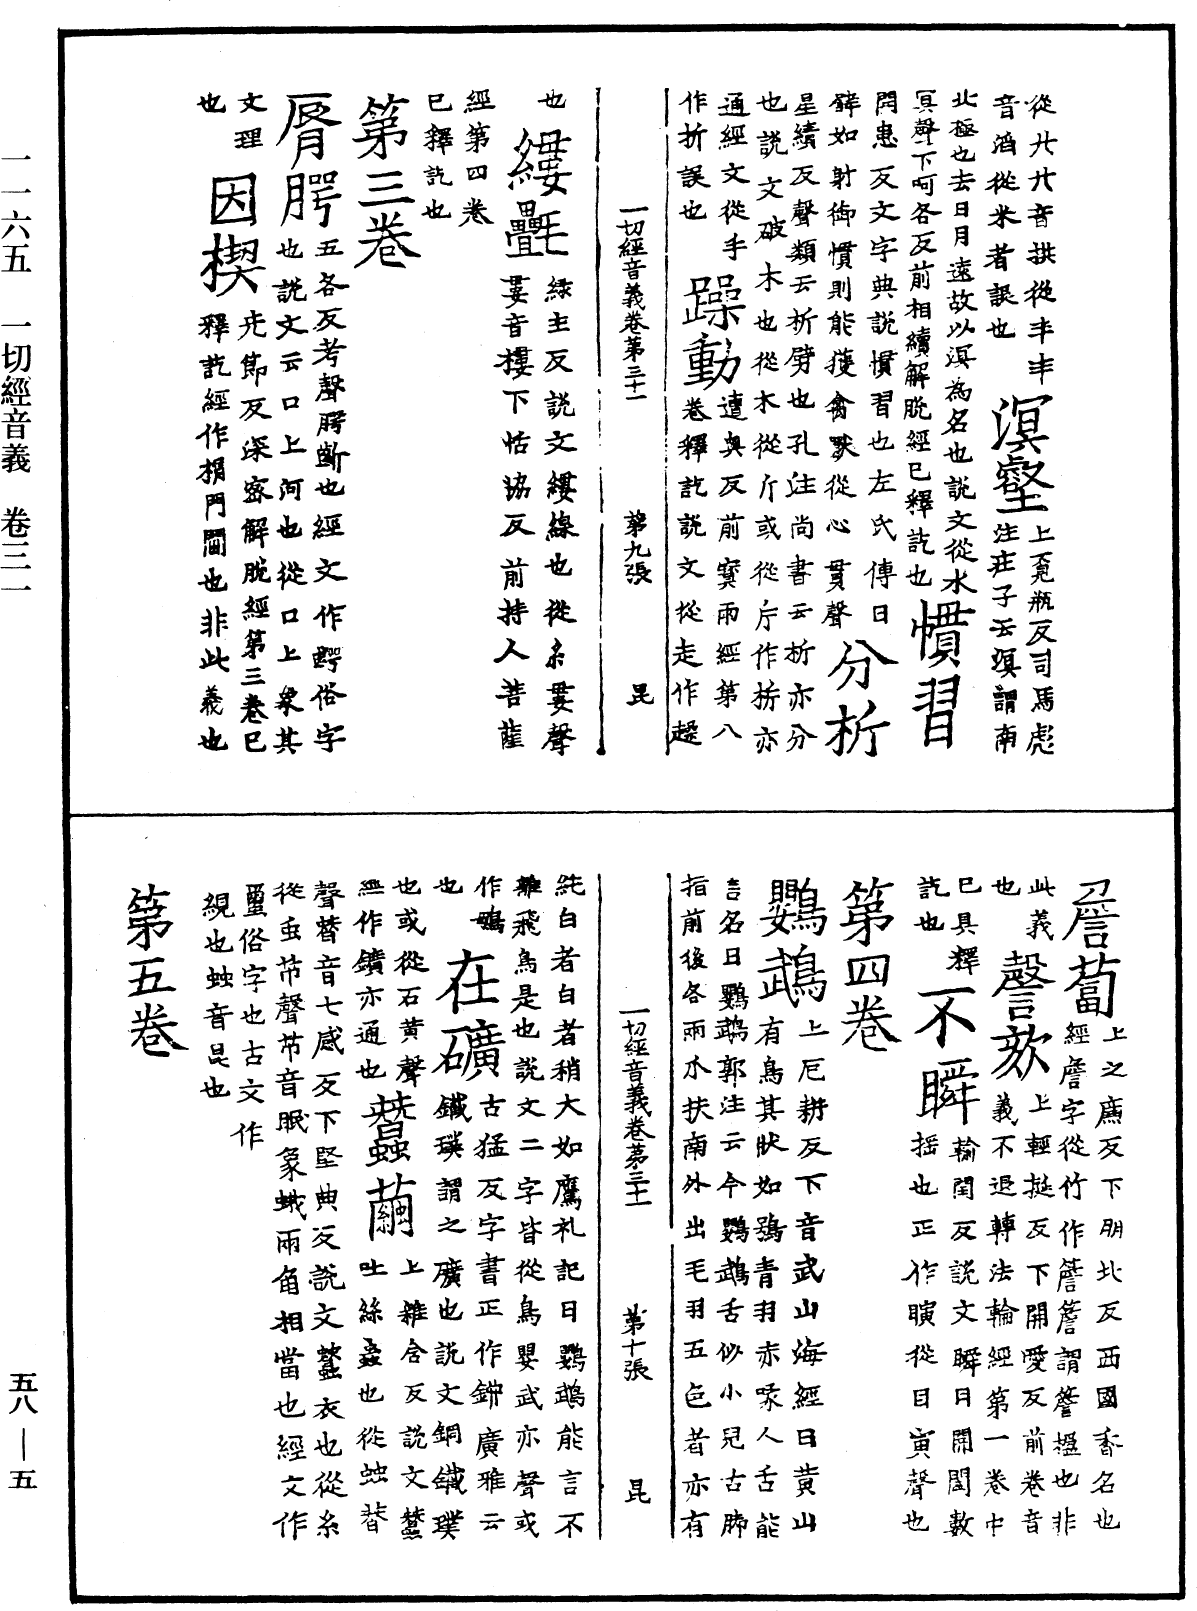 從廾廾音拱從丰丰
音滔從米者誤也
溟壑
上覓瓶反司馬彪
注莊子云溟謂南
北極也去日月遠故以溟為名也說文從水
冥聲下呵各反前相續解脫經已釋訖也
慣習
關患反文字典說慣習也左氏傳曰
譬如射御慣則能獲禽獸從心貫聲
分析
星績反聲類云析劈也孔注尚書云析亦分
也說文破木也從木從斤或從片作㭊亦
通經文從手
作折誤也
躁動
遭奥反前寶雨經第八
卷釋訖說文從走作趮
一切經音義卷第三十一 第九張 昆
也
縷㲲
綠主反說文縷線也從糸婁聲
婁音樓下恬協反前持人菩薩
經第四卷
已釋訖也
第三卷
脣腭
五各反考聲腭斷也經文作齶俗字
也說文云口上河也從口上象其
文理
也
因楔
先節反深密解脫經第三卷已
釋訖經作榍門閫也非此義也
詹蔔
上之廉反下朋北反西國香名也
經詹字從竹作簷簷謂簷榲也非
此義
也
謦欬
上輕挺反下開愛反前卷音
義不退轉法輪經第一卷中
已具釋
訖也
不瞬
輸閏反說文瞬目開閤數
搖也正作瞚從目寅聲也
第四卷
鸚䳇
上厄耕反下音武山海經曰黃山
有鳥其狀如鴞青羽赤喙人舌能
言名曰鸚䳇郭注云今鸚䳇舌似小兒古腨
指前後各兩水扶南外出毛羽五色者亦有
一切經音義卷第三十一 第十張 昆
純白者白者稍大如鷹礼記曰鸚䳇能言不
離飛鳥是也說文二字皆從鳥嬰武亦聲或
作鴟
也
在礦
古猛反字書正作鉚廣雅云
鐵璞謂之礦也說文銅鐵璞
也或從石黃聲
經作鑛亦通也
蠶繭
上雜含反說文蠶
吐絲蟲也從䖵朁
聲朁音七感反下堅典反說文蠶衣也從糸
從虫芇聲芇音眠象蛾兩角相當也經文作
蠒俗字也古文作
絸也䖵音昆也
第五卷
一一六五 一切經音義 卷三一
五八—五